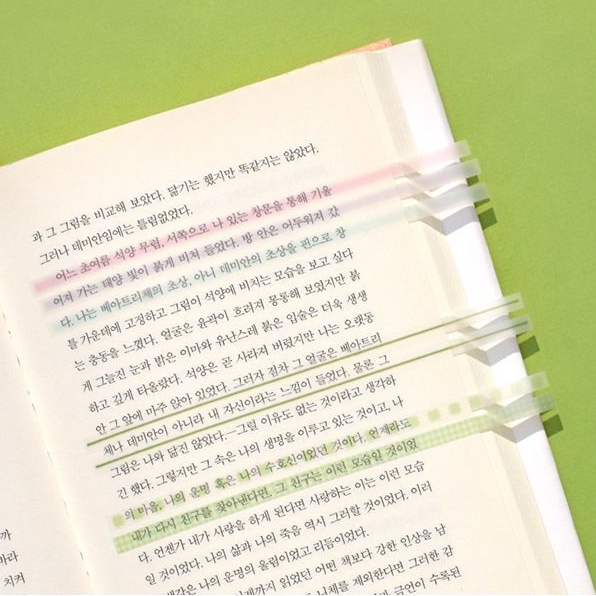 과 그 그림을 비교해 보았다. 닮기는 했지만 똑같지는 않았다.
그러나 데미안임에는 틀림없었다.
어느 초여름 석양 무렵, 서쪽으로 나 있는 창문을 통해 기울
어져 가는 태양 빛이 붉게 비쳐 들었다. 방 안은 어두워져 갔
다. 나는 베아트리체의 초상, 아니 데미안의 초상을 핀으로 창
틀 가운데에 고정하고 그림이 석양에 비치는 모습을 보고 싶다
는 충동을 느꼈다. 얼굴은 윤곽이 흐려져 몽롱해 보였지만 붉
게 그늘진 눈과 밝은 이마와 유난스레 붉은 입술은 더욱 생생
하고 깊게 타올랐다. 석양은 곧 사라져 버렸지만 나는 오랫동
안 그 앞에 마주 앉아 있었다. 그러자 점차 그 얼굴은 베아트리
체나 데미안이 아니라 내 자신이라는 느낌이 들었다. 물론 그
그림은 나와 닮진 않았다.—그럴 이유도 없는 것이라고 생각하
긴 했다. 그렇지만 그 속은 나의 생명을 이루고 있는 것이고, 나
의 마음, 나의 운명 혹은 나의 수호신이었던 것이다. 언제라도
내가 다시 친구를 찾아낸다면, 그 친구는 이런 모습일 것이었
다. 언젠가 내가 사랑을 하게 된다면 사랑하는 이는 이런 모습
일 것이었다. 나의 삶과 나의 죽음 역시 그러할 것이었다. 이러
은 나의 운명의 울림이었고 리듬이었다.
읽었던 어떤 책보다 강한 인상을 남
니체를 제외한다면 그러한 감
금언이 수록된
까
바라
치켜